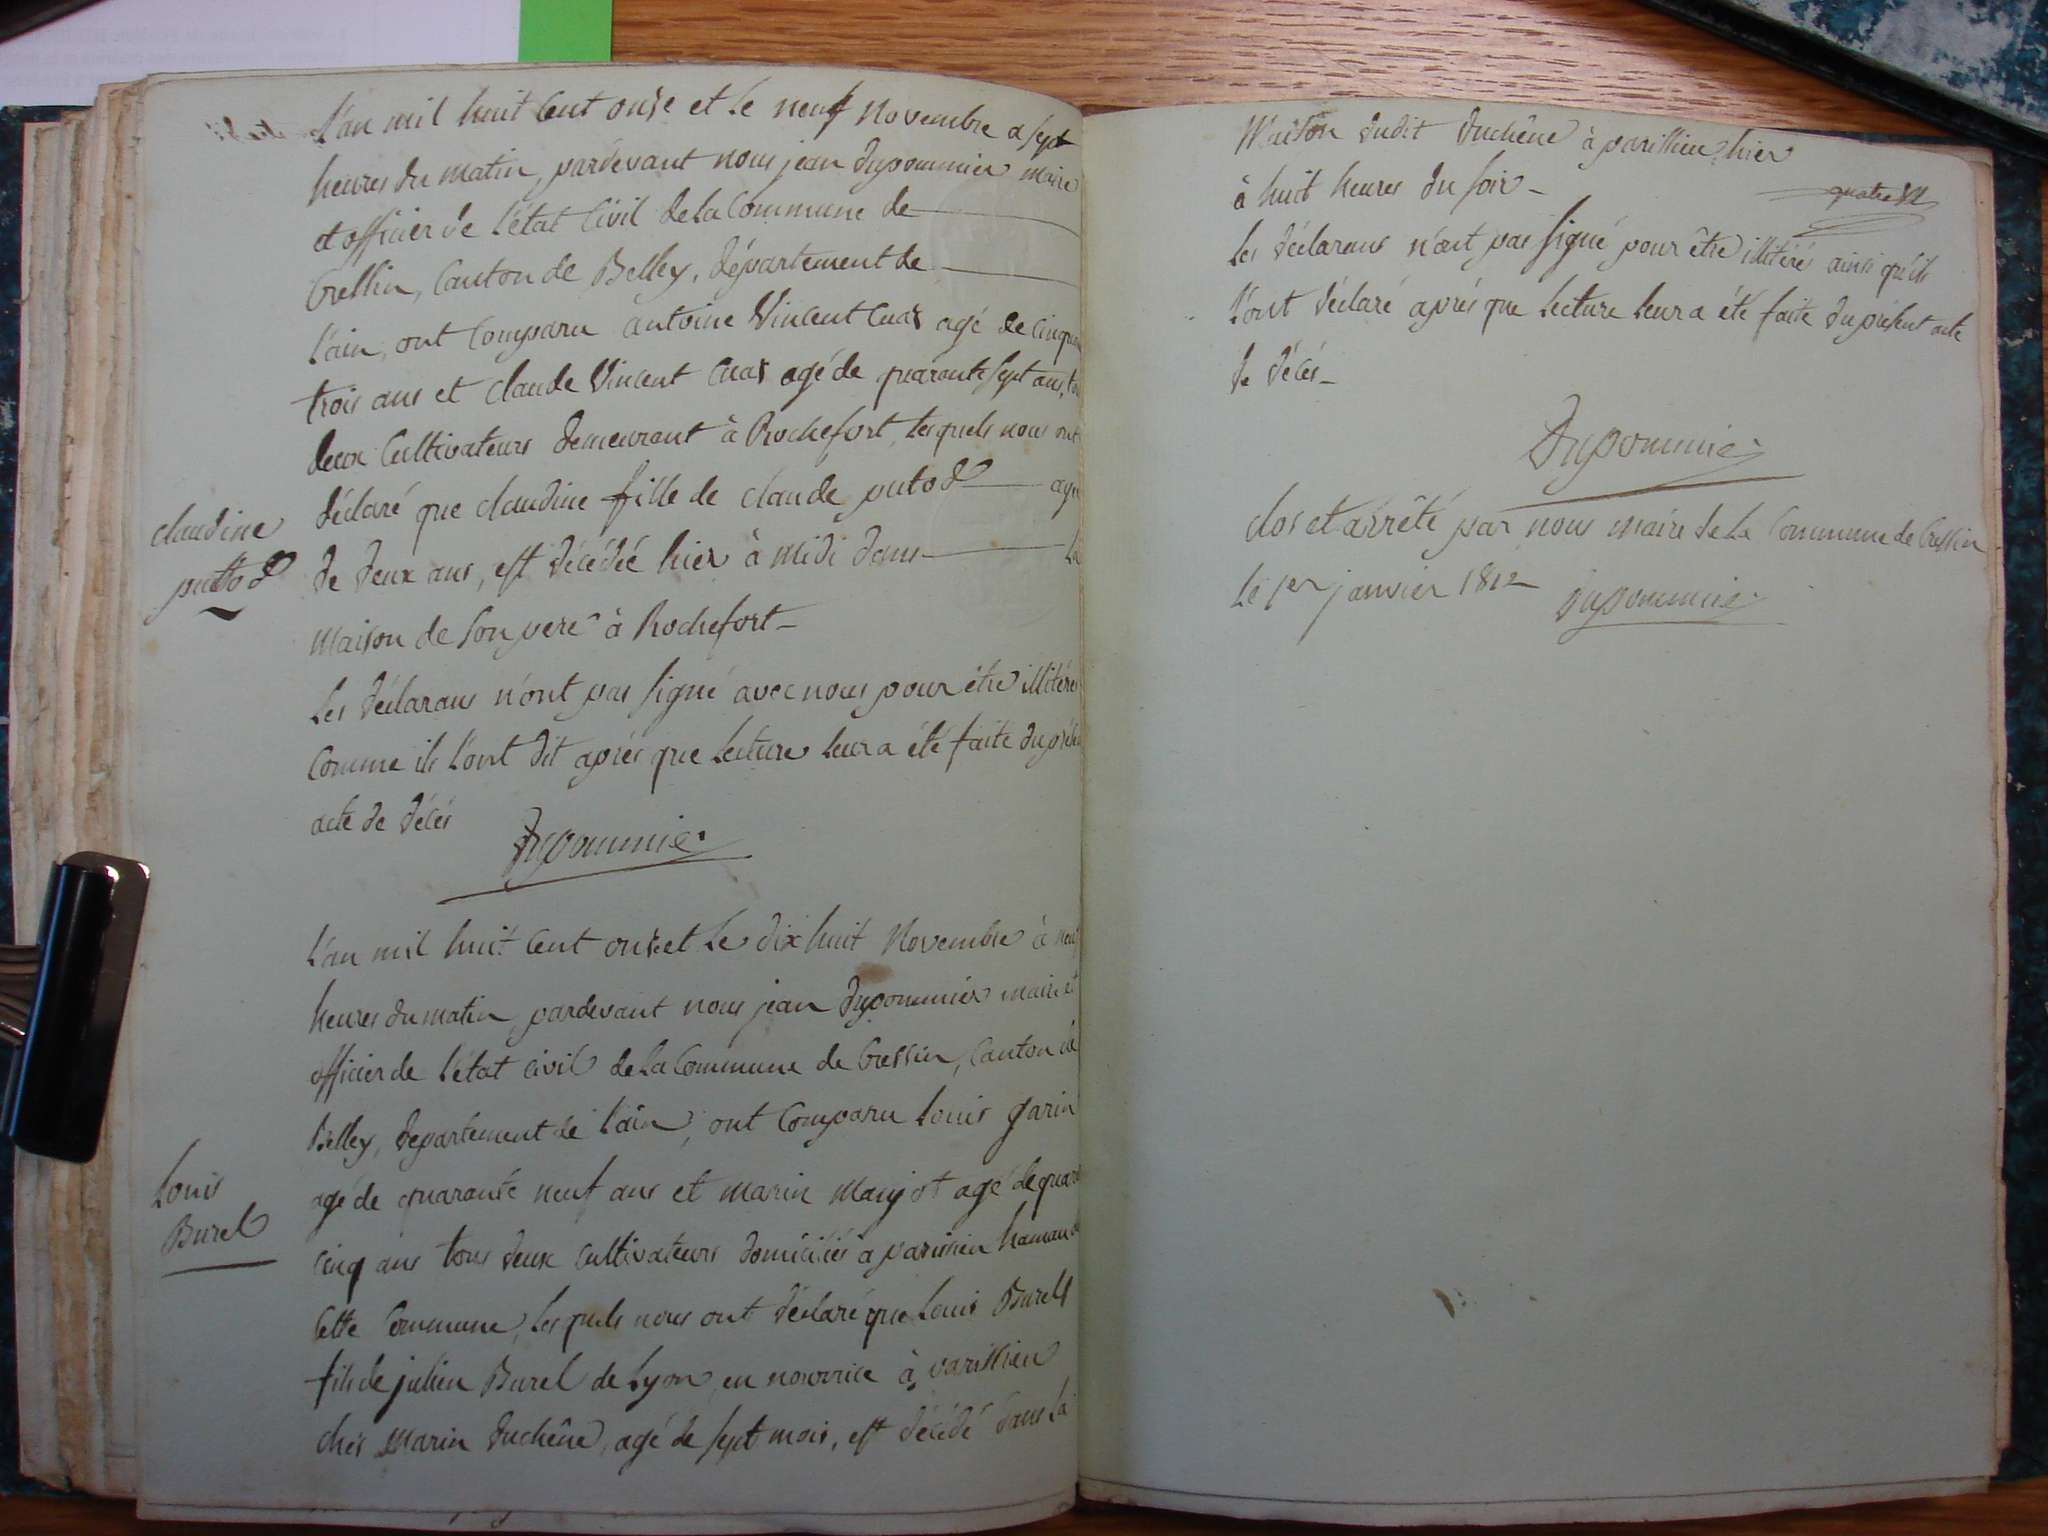 L'an mil huit cent onse et le neuf Novembre a sept
heures du matin, pardevant nous jean Dupommier maire
et officier de l'état Civil de la Commune de
Cressin, Canton de Belley, département de
l'ain, ont Comparu antoine Vincent Cuas agé de cinqua
trois ans et claude Vincent Cuas agé de quarante sept ans,
deux Cultivateurs demeurant à Rochefort, lesquels nous ont
déclaré que claudine fille de claude putod agée
claudine
putod
de deux ans, est décédée hier à midi dans la
maison de son pere à Rochefort
Les déclarans n'ont pas signé avec nous pour être illitérés
comme ils l'ont dit après que lecture leur a été faite du présen
acte de décés
Dupommier
L'an mil huit cent onse et le dix huit Novembre à neuf
heures du matin, pardevant nous jean Dupommier maire et
officier de l'état civil de la Commune de Cressin, Canton de
Belley, departement de l'ain, ont Comparu Louis garin
agé de quarante neuf ans et marin maujot agé de quara
Louis
Burel
cinq ans tous deux cultivateurs domiciliés a parissieu hamau de
Cette Commune, lesquels nous ont déclaré que Louis Burel
fils de julien Burel de Lyon, en nourrice à parissieu
chés Marin Duchêne, agé de sept mois, est décédé dans la
Maison dudit Duchêne à parissieu, hier
à huit heures du soir
Les déclarans n'ont pas signé pour être illitéré ainsi qu'ils
l'ont déclaré après que lecture leur a été faite du présent acte
de décés
Dupommier
clos et arrêté par nous maire de la Commune de Cressin
le 1er janvier 1812 Dupommier